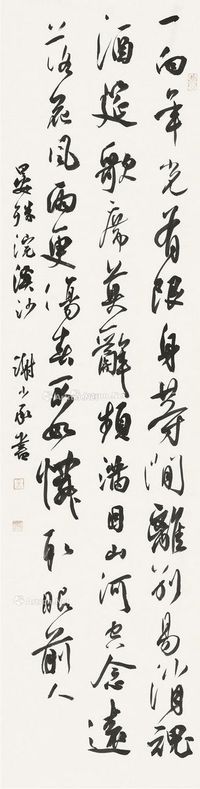 一向年光有限身等闲離别易消魂
酒筵歌席莫辭頻滿目山河空念遠
落花風雨更傷春不如憐取眼前人
晏殊浣溪沙 謝少承書